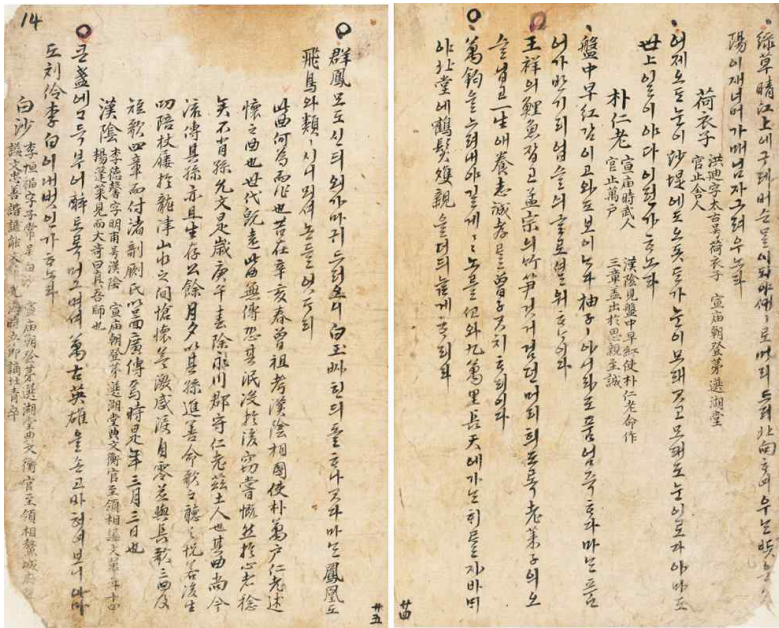 綠草晴江上에구레버슨ᄆᆞᆯ이되야때ㅣ로머리드러北向ᄒᆞ여우ᄂᆞᆫᄯᅳᆺ은
陽이재너머가매님자그려우노라
荷衣子 洪迪字太古号荷衣子 宣庙朝登第選湖堂
官止舍人
어제오ᄃᆞᆫ눈이沙堤에도오돗ᄃᆞᆫ가눈이모래ᄀᆞᆺ고모래도눈이로다아마도
世上일이야다이런가ᄒᆞ노라
朴仁老 宣庙時武人 漢陰見盤中早紅使朴仁老命作
官止萬戶 三章盖出於思親至誠
盤中早紅감이고와도보이ᄂᆞ다柚子ㅣ아니라도품엄즉ᄒᆞ다마ᄂᆞᆫ품
어가반기리업슬ᄉᆡ글로셜워ᄒᆞᄂᆞ이다
王祥의鯉魚잡고孟宗의竹笋것거검던머리희도록老萊子의오
슬닙고一生애養志誠孝를曾子ᄀᆞᆺ치ᄒᆞ리이다
萬鈞을늘려내야길게ㅣㅣ노흘ᄭᅩ와九萬里長天에가ᄂᆞᆫᄒᆡ를자바ᄆᆡ
야北堂에鶴髮雙親을더듸늙게ᄒᆞ리라
廿四
14
群鳳모도신듸외가마귀드러오니白玉ᄡᅡ힌듸돌ᄒᆞ나ᄀᆞᆺ다마ᄂᆞᆫ鳳凰도
飛鳥와類ㅣ시니뫼셔논들엇더리
此曲何爲而作也昔在辛亥春曾祖考漢陰相國使朴萬戶仁老述
懷之曲也世代旣遠此曲無傳恐其泯沒於後竊嘗慨然於心者稔
矣不肖孫允文是歲庚午春除永川郡守仁老玆土人也其曲尚今
流傳其孫亦且生存公餘月夕以其孫進善命歌之聽之怳若後生
叨陪杖屨於龍津山水之間愴懷益激感淚自零並與長歌三曲及
短歌四章而付諸剞劂氏以啚廣傳焉時是年三月三日也
漢陰 李德馨字明甫号漢陰 宣庙朝登第選湖堂典文衡官至領相諡文
楊蓬萊見而大奇曰君吾師也
큰盞에ᄀᆞ득부어醉토록머그며셔萬古英雄을손고바혜여보니아마
도刘伶李白이내벗인가ᄒᆞ노라
白沙 李恒福字子常号白沙 宣庙朝登第選湖堂典文衡官至領相鰲城
廿五